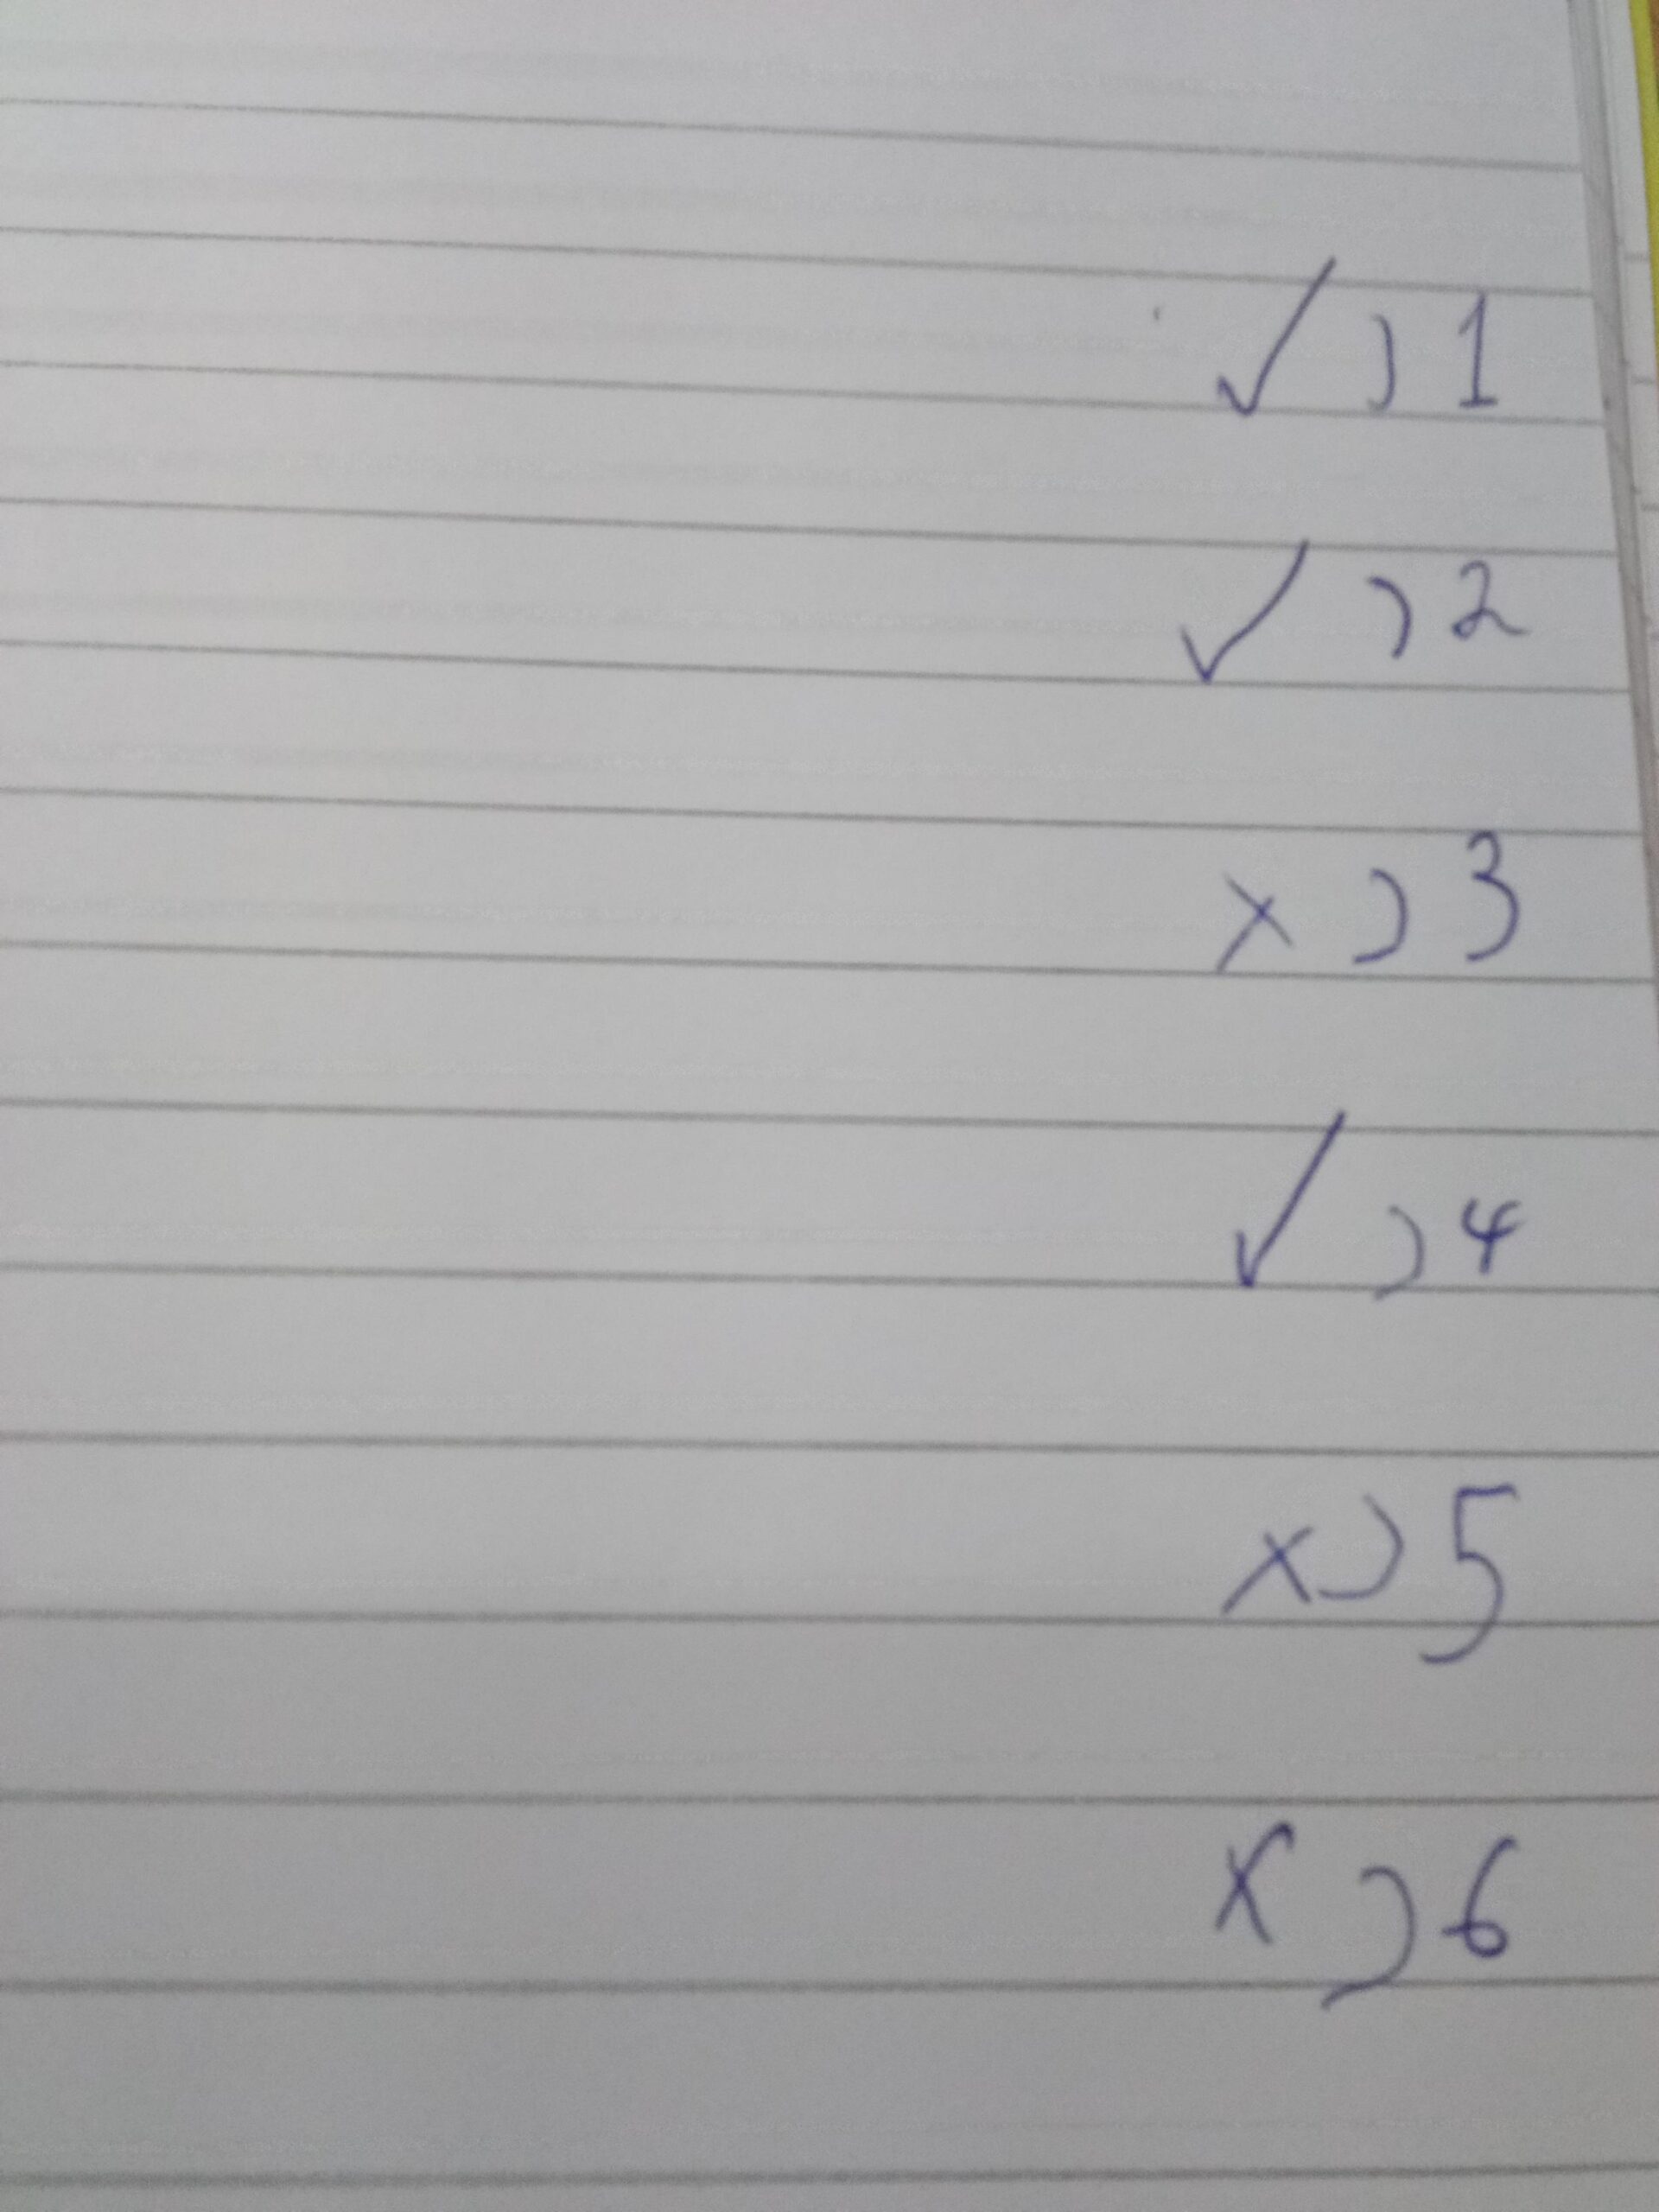 1) ✓
2) ✓
3) ×
4) ✓
5) ×
6) ×